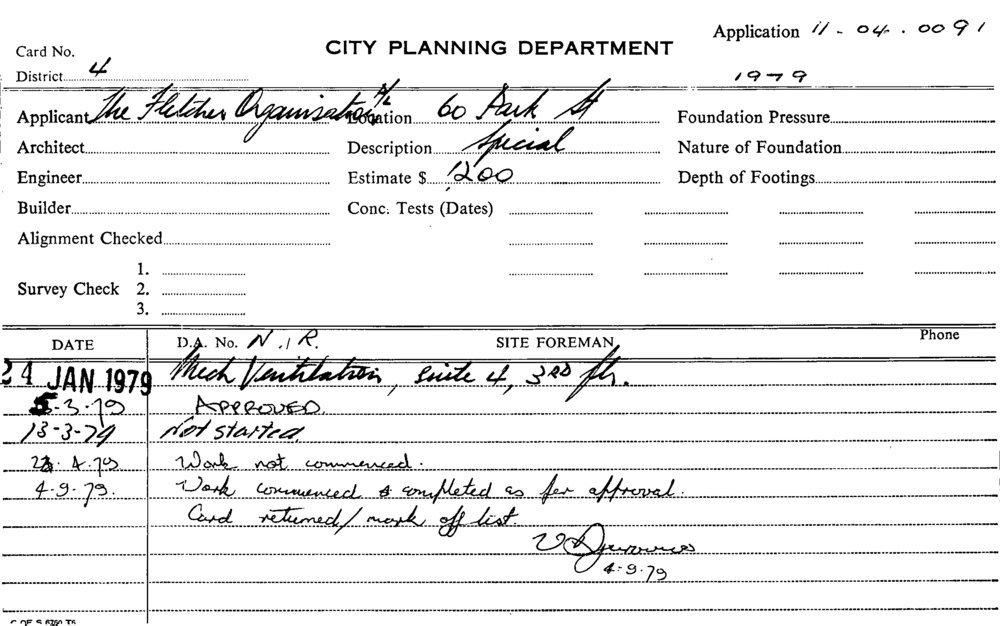 Application 11-04.0091
Card No. CITY PLANNING DEPARTMENT
District 4 1979
Applicant The Fletcher Organisation P/L Location 60 Park St Foundation Pressure
Architect Description Special Nature of Foundation
Engineer Estimate $ 1200 Depth of Footings
Builder Conc. Tests (Dates)
Alignment Checked
1.
Survey Check 2.
3.
DATE D.A. No. N.I.R. SITE FOREMAN Phone
24 JAN 1979 Mech Ventilation, Suite 4, 3RD flr.
5-3-79 APPROVED.
13-3-79 Not started.
4.79 Work not commenced.
4-9-79. Work commenced & completed as per approval.
Card returned/mark off list.
4-9-79